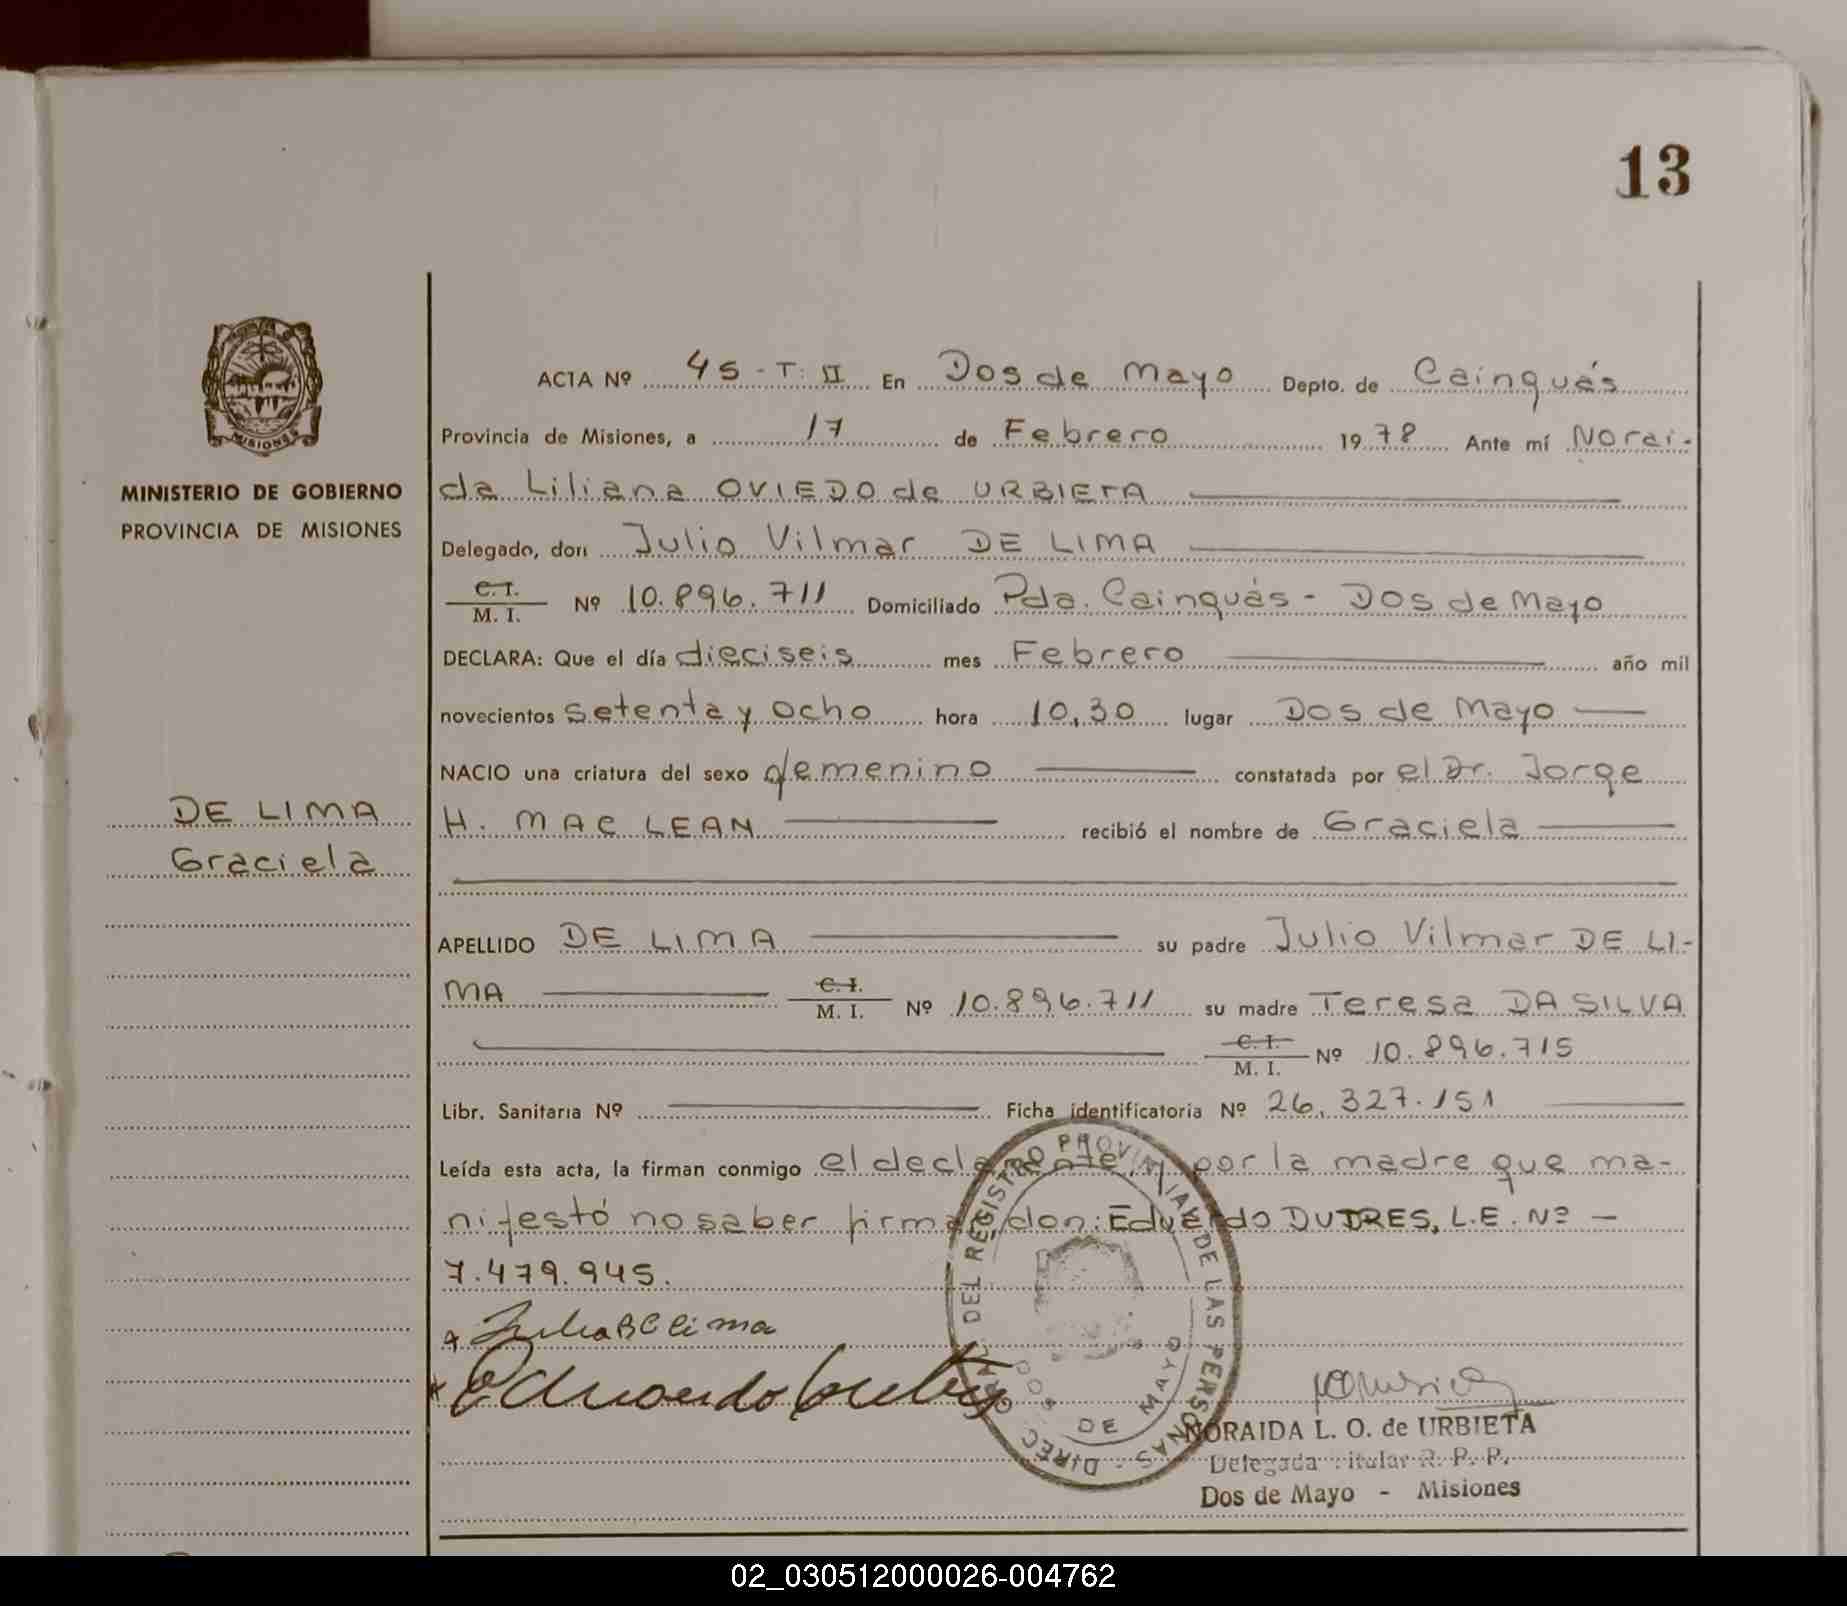 13
MISIONES
MINISTERIO DE GOBIERNO
PROVINCIA DE MISIONES
DE LIMA
Graciela
ACTA Nº 45 - T: II En Dos de Mayo Depto. de Cainguás
Provincia de Misiones, a 17 de Febrero 1978 Ante mí Norai-
da Liliana OVIEDO de URBIETA
Delegado, don Julio Vilmar DE LIMA
C. I.
M. I. Nº 10.896.711 Domiciliado Pda. Cainguás - Dos de Mayo
DECLARA: Que el día dieciseis mes Febrero año mil
novecientos setenta y ocho hora 10,30 lugar Dos de Mayo
NACIO una criatura del sexo femenino constatada por el Dr. Jorge
H. MAC LEAN recibió el nombre de Graciela
APELLIDO DE LIMA su padre Julio Vilmar DE LI-
MA C. I. M. I. Nº 10.896.711 su madre Teresa DA SILVA
C. I. M. I. Nº 10.896.715
Libr. Sanitaria Nº Ficha identificatoria Nº 26.327.151
Leída esta acta, la firman conmigo el declarante y por la madre que ma-
nifestó no saber firmar don: Eduardo DUTRES, L.E. Nº -
7.479.945.
DIREC. GRAL. DEL REGISTRO PROVINCIAL DE LAS PERSONAS -
DOS DE MAYO
NORAIDA L. O. de URBIETA
Delegada Titular R. P. P.
Dos de Mayo - Misiones
02_030512000026-004762